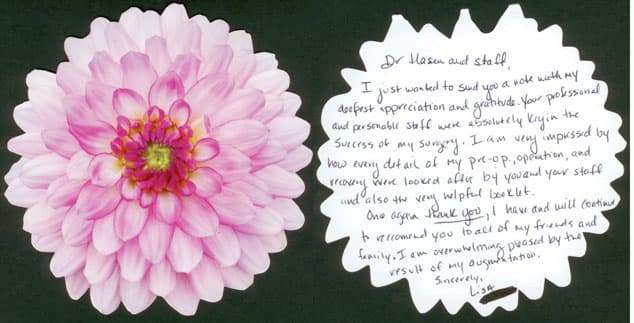 Dr Hasen and staff,
I just wanted to send you a note with my
deepest appreciation and gratitude. Your professional
and personable staff were absolutely key in the
success of my surgery. I am very impressed by
how every detail of my pre-op, operation, and
recovery were looked after by you and your staff
and also the very helpful booklet.
Once again thank you, I have and will continue
to reccomend you to all of my friends and
family. I am overwhelming pleased by the
result of my augmentation.
Sincerely,
Lisa